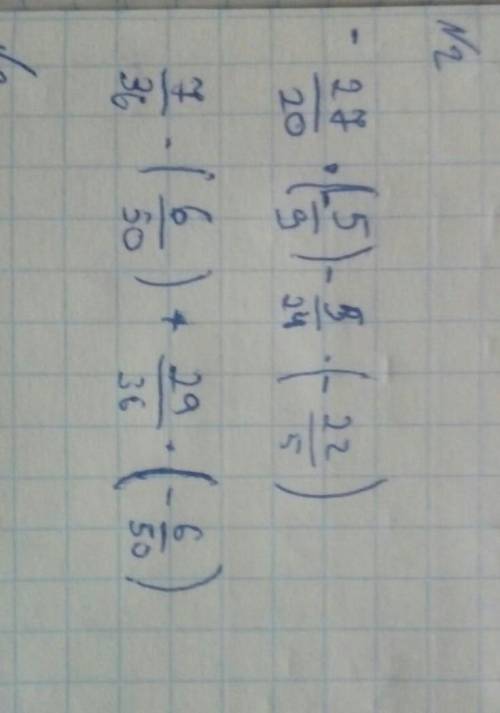 №2
- 27/20 · (-5/9) - 5/24 · (- 22/5)
7/36 · (6/50) + 29/36 · (- 6/50)